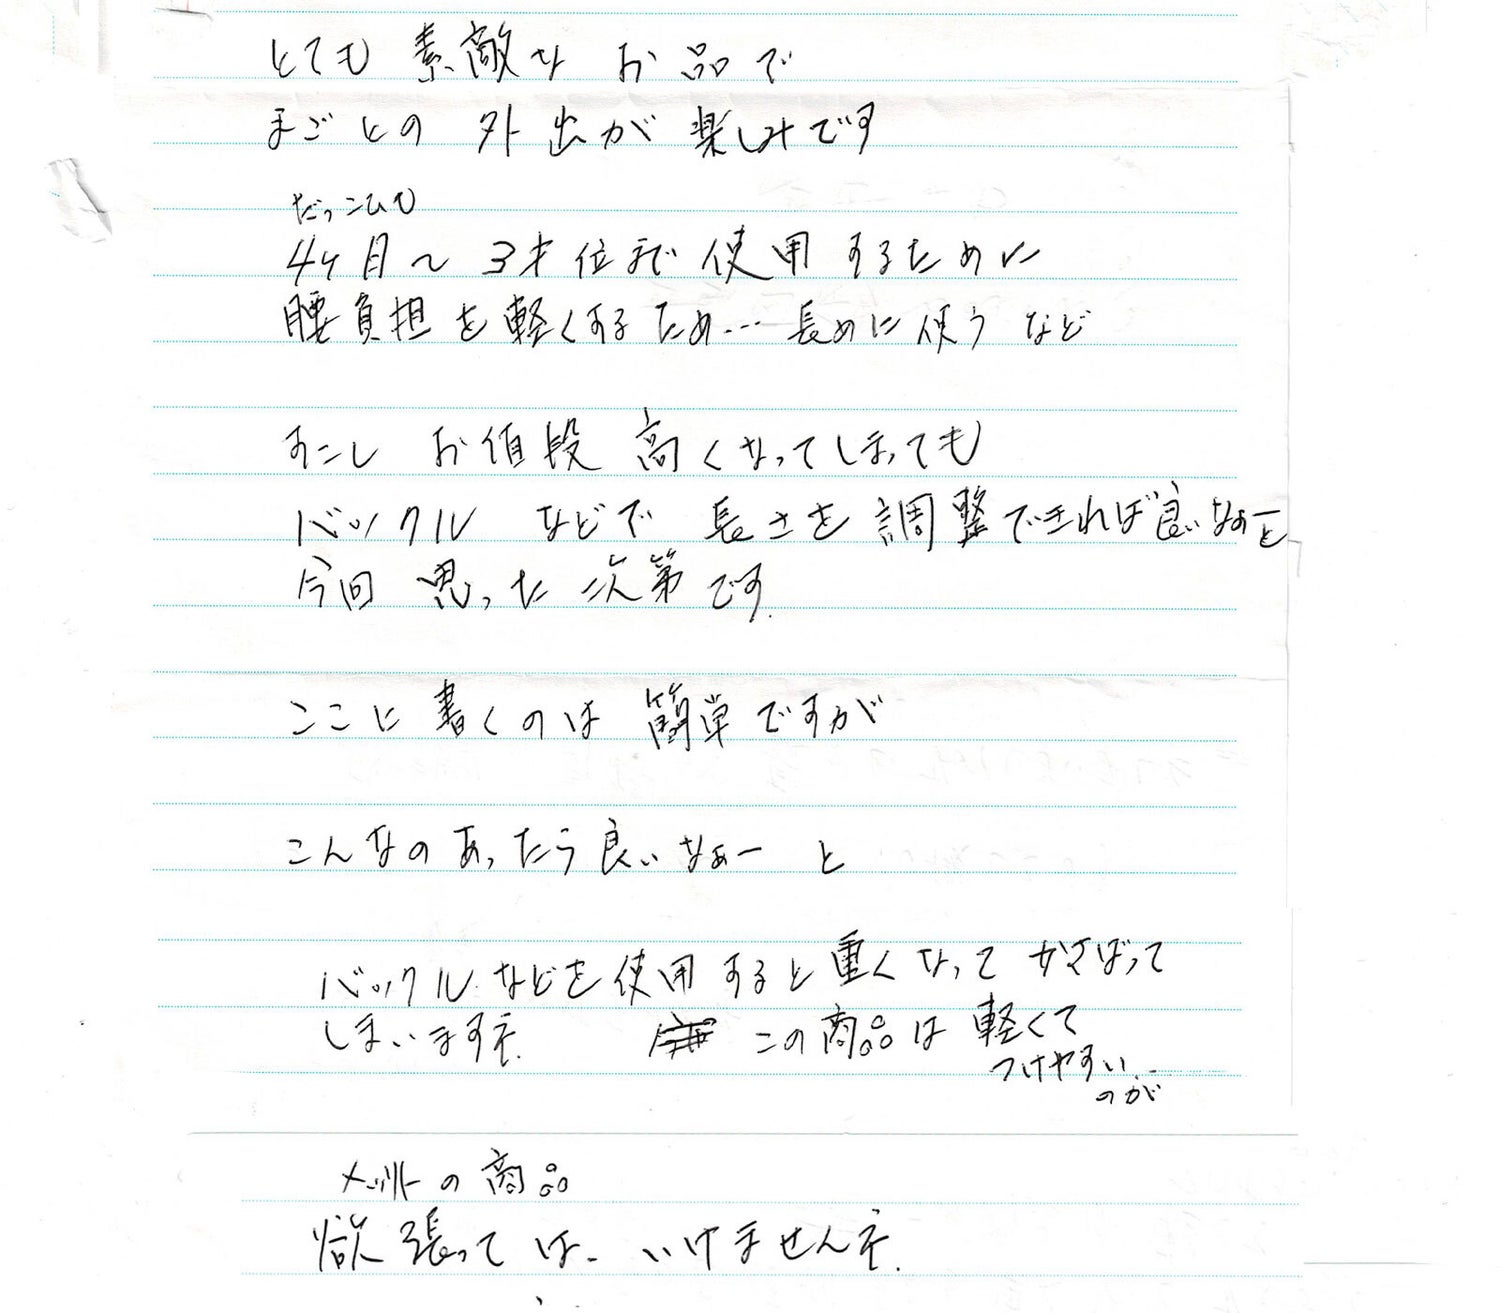 とても 素敵な お品で
まごとの 外出が 楽しみです
だっこひも
4ヶ月〜3才位まで 使用するために
腰負担を軽くするため… 長めに使う など
すこし お値段 高くなってしまっても
バックル などで 長さを 調整できれば良いなぁーと
今回 思った 次第です.
ここに 書くのは 簡単ですが
こんなのあったら良いなぁー と
バックルなどを使用すると重くなって かさばって
しまいますネ. この商品は軽くて
つけやすい…
のが
メリットの商品
欲張っては いけませんネ.